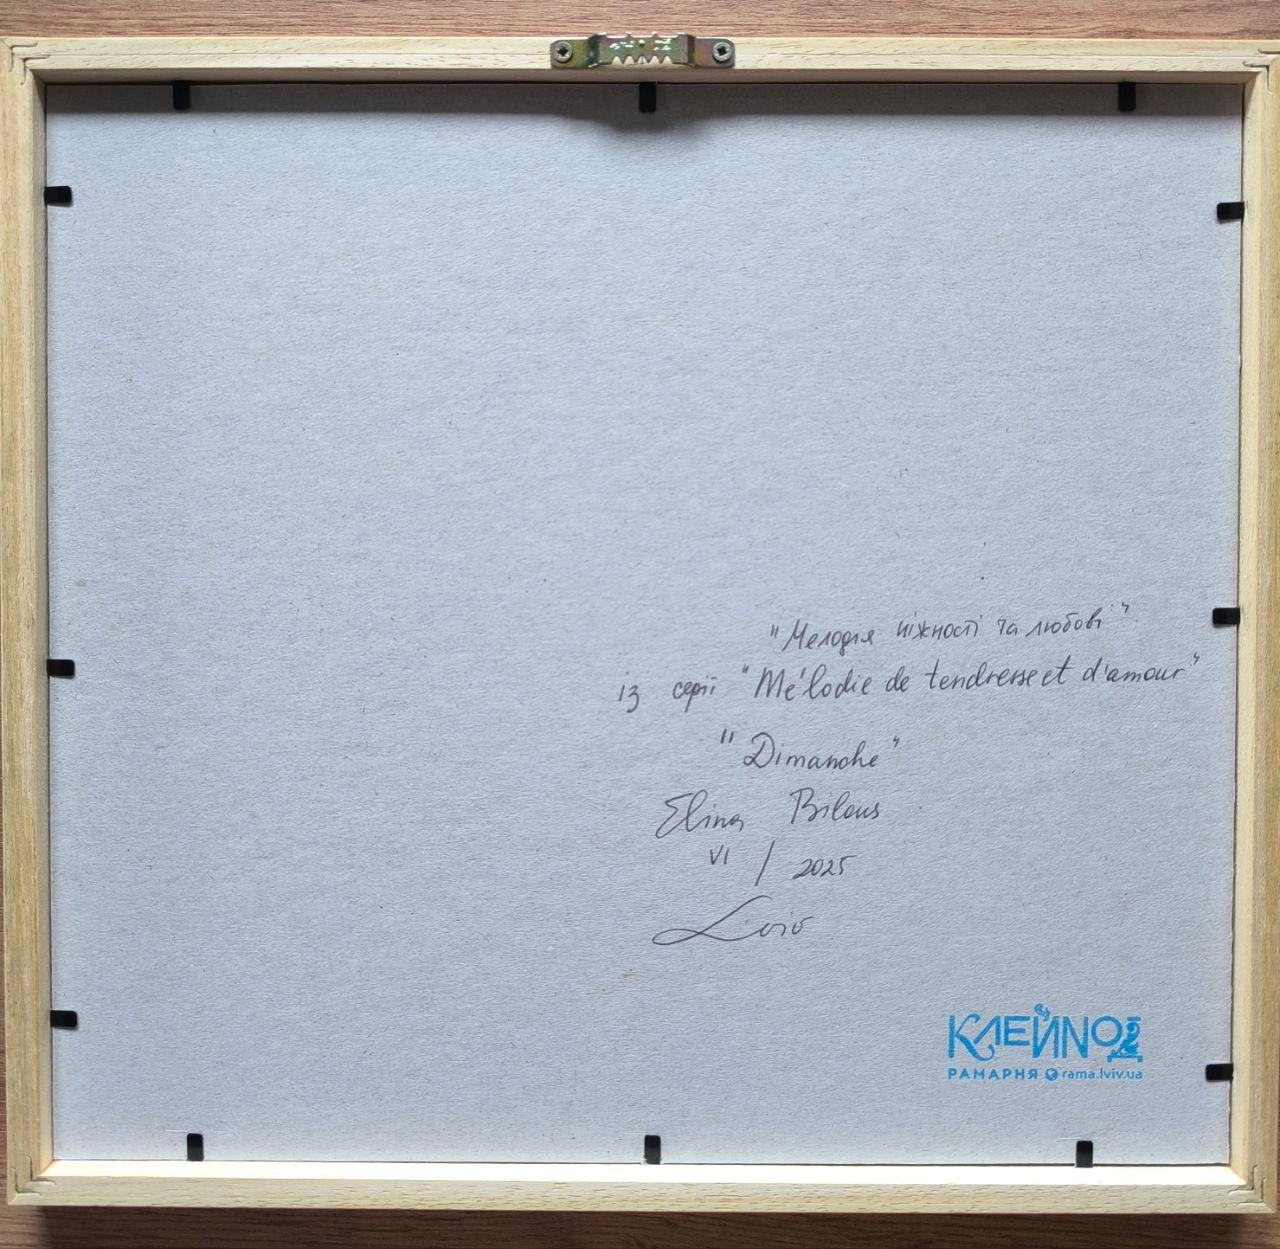 "Мелодія ніжності та любові"
із серії "Mélodie de tendresse et d'amour"
"Dimanche"
Elina Bilous
VI / 2025
Lviv
КЛЕЙНОД
РАМАРНЯ rama.lviv.ua